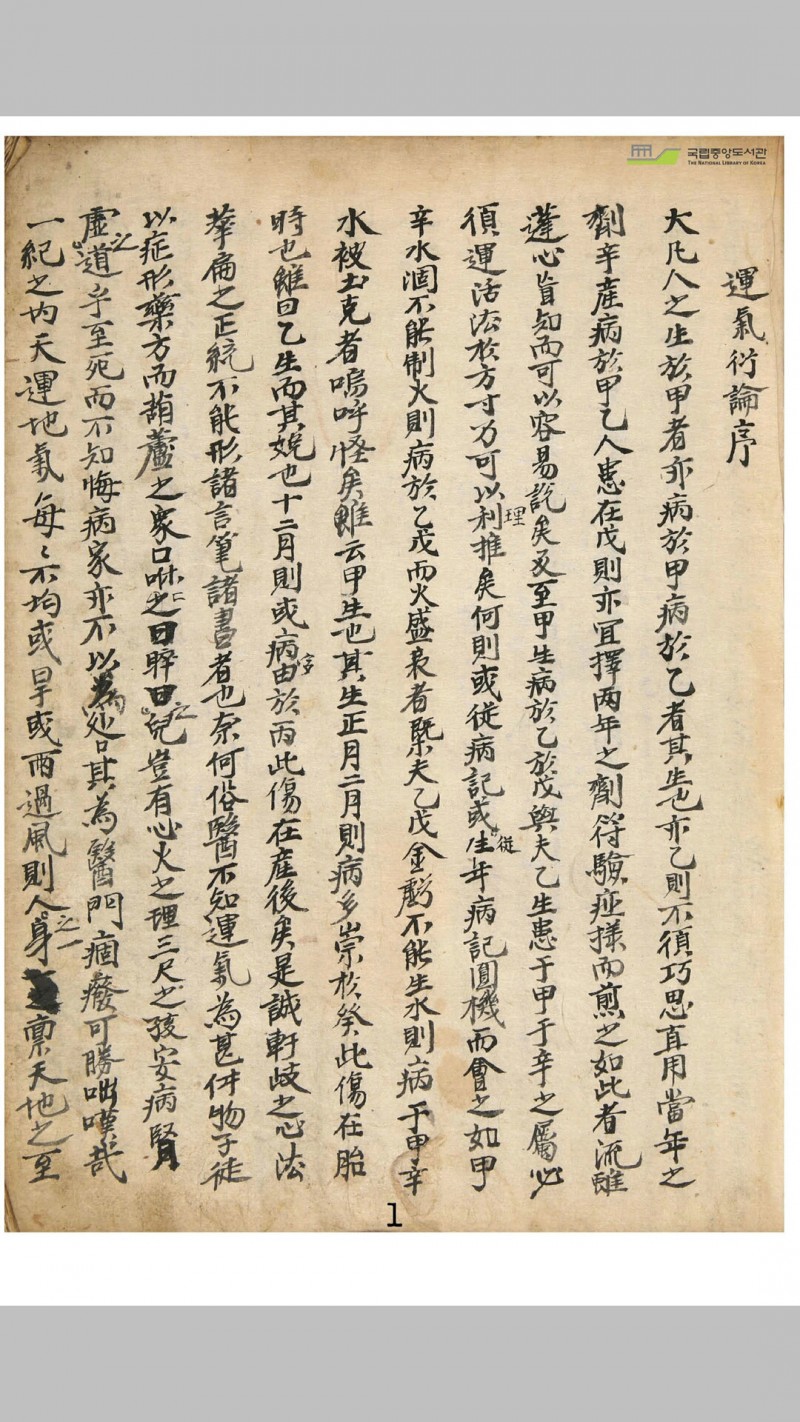 국립중앙도서관
THE NATIONAL LIBRARY OF KOREA
運氣衍論序
大凡人之生於甲者亦病於甲病於乙者其生也亦乙則不須巧思直用當年之
劑辛産病於甲乙人患在戊則亦宜擇两年之劑符驗症㨾而煎之如此者流雖
蓬心皆知而可以容易說矣及至甲生病於乙於戊與夫乙生患于甲于辛之屬必
須運活法於方寸乃可以利理推矣何則或從病記或從生年病記圓機而會之如甲
辛水涸不能制火則病於乙戊而火盛衰者槩夫乙戊金虧不能生水則病于甲辛
水被土克者嗚呼怪矣雖云甲生也其生正月二月則病多崇於癸此傷在胎
時也雖曰乙生而其娩也十二月則或病由於丙此傷在産後矣是誠軒岐之心法
華扁之正統不能形諸言筆諸書者也奈何俗醫不知運氣為甚件物子徒
以症形藥方而葫蘆之衆口咻之曰睟之兒豈有心火之理三尺之孩安病腎
虛之道乎至死而不知悔病家亦不以為其為醫門痼癈可勝咄嘆哉
一紀之内天運地氣每〻不均或旱或雨過風則人之一身稟天地之至
1